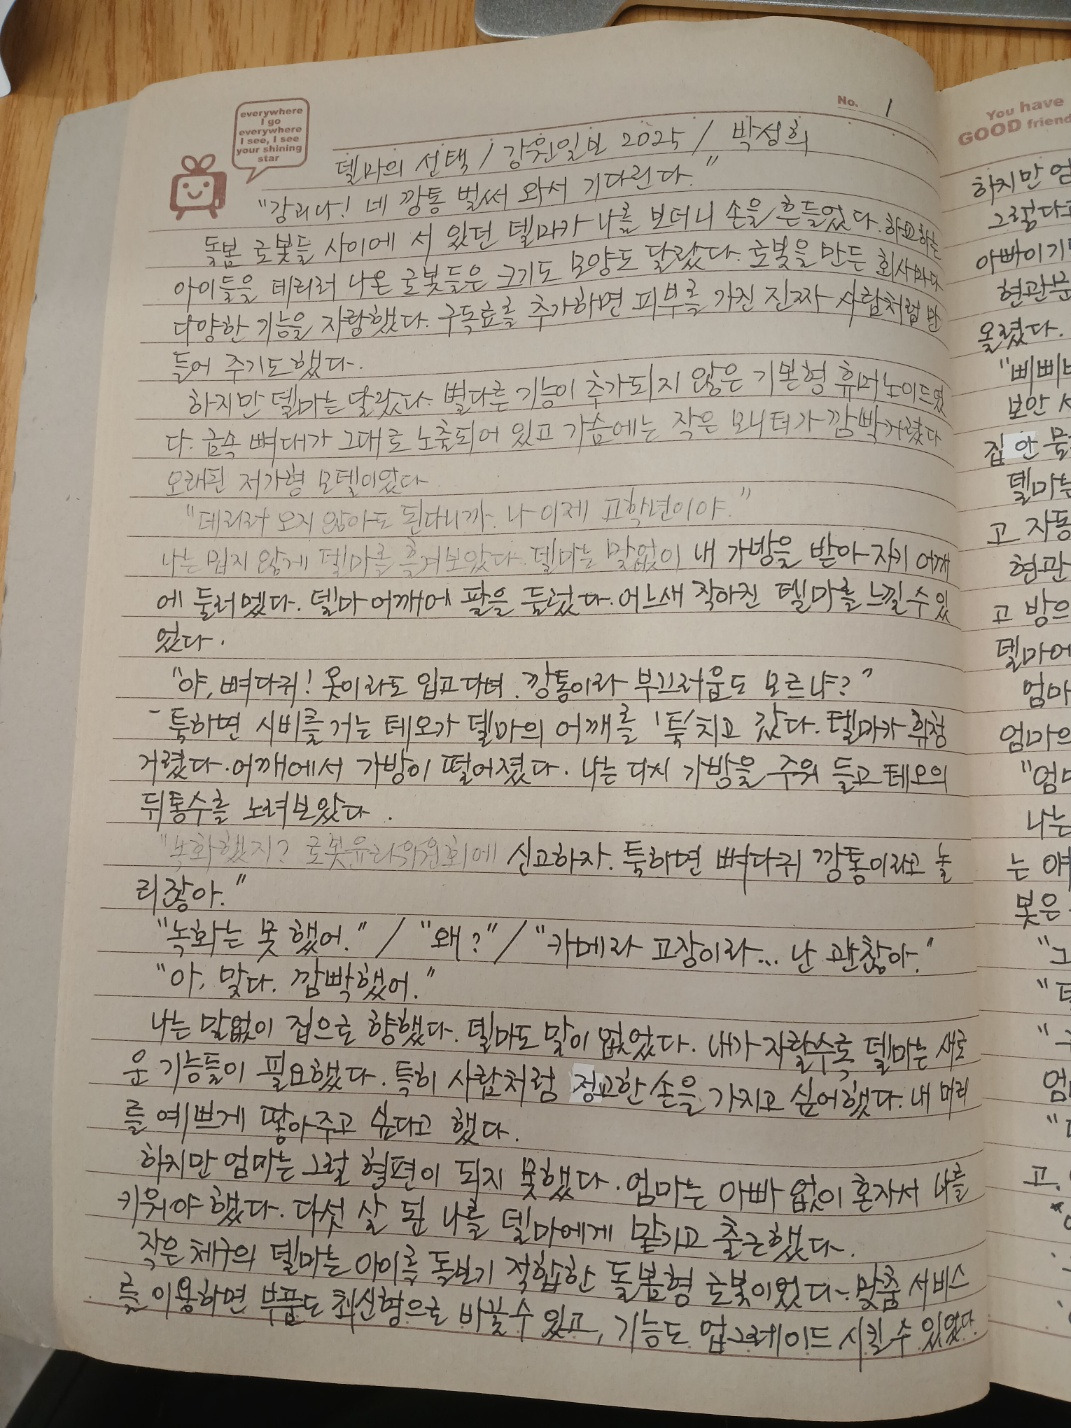 everywhere
I go
everywhere
I see, I see
your shining
star
No. 1
델마의 선택 / 강원일보 2025 / 박성희
"강리나! 네 깡통 벌써 와서 기다린다."
돌봄 로봇들 사이에 서 있던 델마가 나를 보더니 손을 흔들었다. 하교하는
아이들을 데리러 나온 로봇들은 크기도 모양도 달랐다. 로봇을 만든 회사마다
다양한 기능을 자랑했다. 구독료를 추가하면 피부를 가진 진짜 사람처럼 만
들어 주기도 했다.
하지만 델마는 달랐다. 별다른 기능이 추가되지 않은 기본형 휴머노이드였
다. 금속 뼈대가 그대로 노출되어 있고 가슴에는 작은 모니터가 깜빡거렸다
오래된 저가형 모델이었다
"데리러 오지 않아도 된다니까. 나 이제 고학년이야."
나는 밉지 않게 델마를 흘겨보았다. 델마는 말없이 내 가방을 받아 자기 어깨
에 둘러멨다. 델마 어깨에 팔을 둘렀다. 어느새 작아진 델마를 느낄 수 있
었다.
"야, 뼈다귀! 옷이라도 입고 다녀. 깡통이라 부끄러움도 모르냐?"
툭하면 시비를 거는 테오가 델마의 어깨를 '툭' 치고 갔다. 델마가 휘청
거렸다. 어깨에서 가방이 떨어졌다. 나는 다시 가방을 주워 들고 테오의
뒤통수를 노려보았다.
"녹화했지? 로봇윤리위원회에 신고하자. 툭하면 뼈다귀 깡통이라고 놀
리잖아."
"녹화는 못 했어." / "왜?" / "카메라 고장이라... 난 괜찮아."
"아, 맞다. 깜빡했어."
나는 말없이 집으로 향했다. 델마도 말이 없었다. 내가 자랄수록 델마는 새로
운 기능들이 필요했다. 특히 사람처럼 정교한 손을 가지고 싶어했다. 내 머리
를 예쁘게 땋아주고 싶다고 했다.
하지만 엄마는 그럴 형편이 되지 못했다. 엄마는 아빠 없이 혼자서 나를
키워야 했다. 다섯 살 된 나를 델마에게 맡기고 출근했다.
작은 체구의 델마는 아이를 돌보기 적합한 돌봄형 로봇이었다. 맞춤 서비스
를 이용하면 부품도 최신형으로 바꿀 수 있고, 기능도 업그레이드 시킬 수 있었다.
You have
GOOD friend
하지만 엄
그렇다고
현관문
올렸다.
보안 시
집 안
델마는
고 자동
현관
고 방으
델마에
엄마
엄마의
나는
봇은